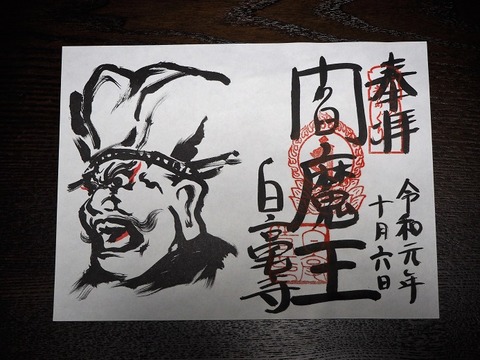 奉拝
令和元年
十月六日
閻魔王
白毫寺